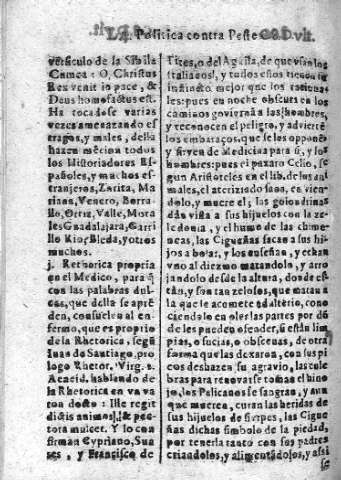 Politica contra Peste
versiculo de la Sibila
Cumea: O, Christus
Rex venit in pace, &
Deus homo factus est.
Ha tocadose varias
vezes amenazando es
tragos, y males, della
hazen mēcion todos
los Historiadores Es
pañoles, y muchos es-
trangeros, Zurita, Ma
riana, Venero, Borra
llo, Ortiz, Valle, Mora
les Guadalajara, Carri
llo Rio, Bleda, y otros
muchos.
j. Rethorica propria
en el Medico, para q̄
con las palabras dul-
ces, que della se aprē
den, consuele al en-
fermo, que es proprio
de la Rhetorica, segū
Iuan de Santiago, pro
logo Rhetor, Virg. 1.
Acneid, hablando de
la Rhetorica en va va
ton docto: Ille regit
dictis animos, & pec-
tora mulcet. Y lo con
firman Cypriano, Sua
res, y Francisco de
Tires, o del Aguila, de que usan los
Italianos!, y todos ellos tienen in
instincto mejor que los raciona-
les: pues en noche obscura en los
caminos goviernā a los hombres,
y reconocen el peligro, y advierten
los embaraços, que se les oppone,
y sirven de Medicina para si, y los
hombres: pues el paxaro Celio, se
gun Aristoteles en el lib. de los ani
males, el atericiado sana, en vien-
dolo, y muere el; las golondrinas
dan vista a sus hijuelos con la ze-
ledonia, y el humo de las chime-
neas, las Cigueñas sacan a sus hi-
jos a bolar, y los enseñan, y echan
uno al diezmo matandolo, y arro
jandolo desde la altura, donde es-
tán, y son tan zelosos, que matan a
la que le acomete adulterio, cono
ciendolo en oler las partes por dō
de les pueden ofender, si están lim
pias, o sucias, o obscenas, de otra
forma que las dexaron, con sus pi
cos deshazen su agravio, las cule
bras para renovarse toman el hino
jo, los Pelicanos se sangran, y aun
que mueran, curan las heridas de
sus hijuelos de sirpes, las Cigue
ñas dichas simbolo de la piedad,
por tenerla tanto con sus padres
criandolos, y alimentandolos, y assi
se